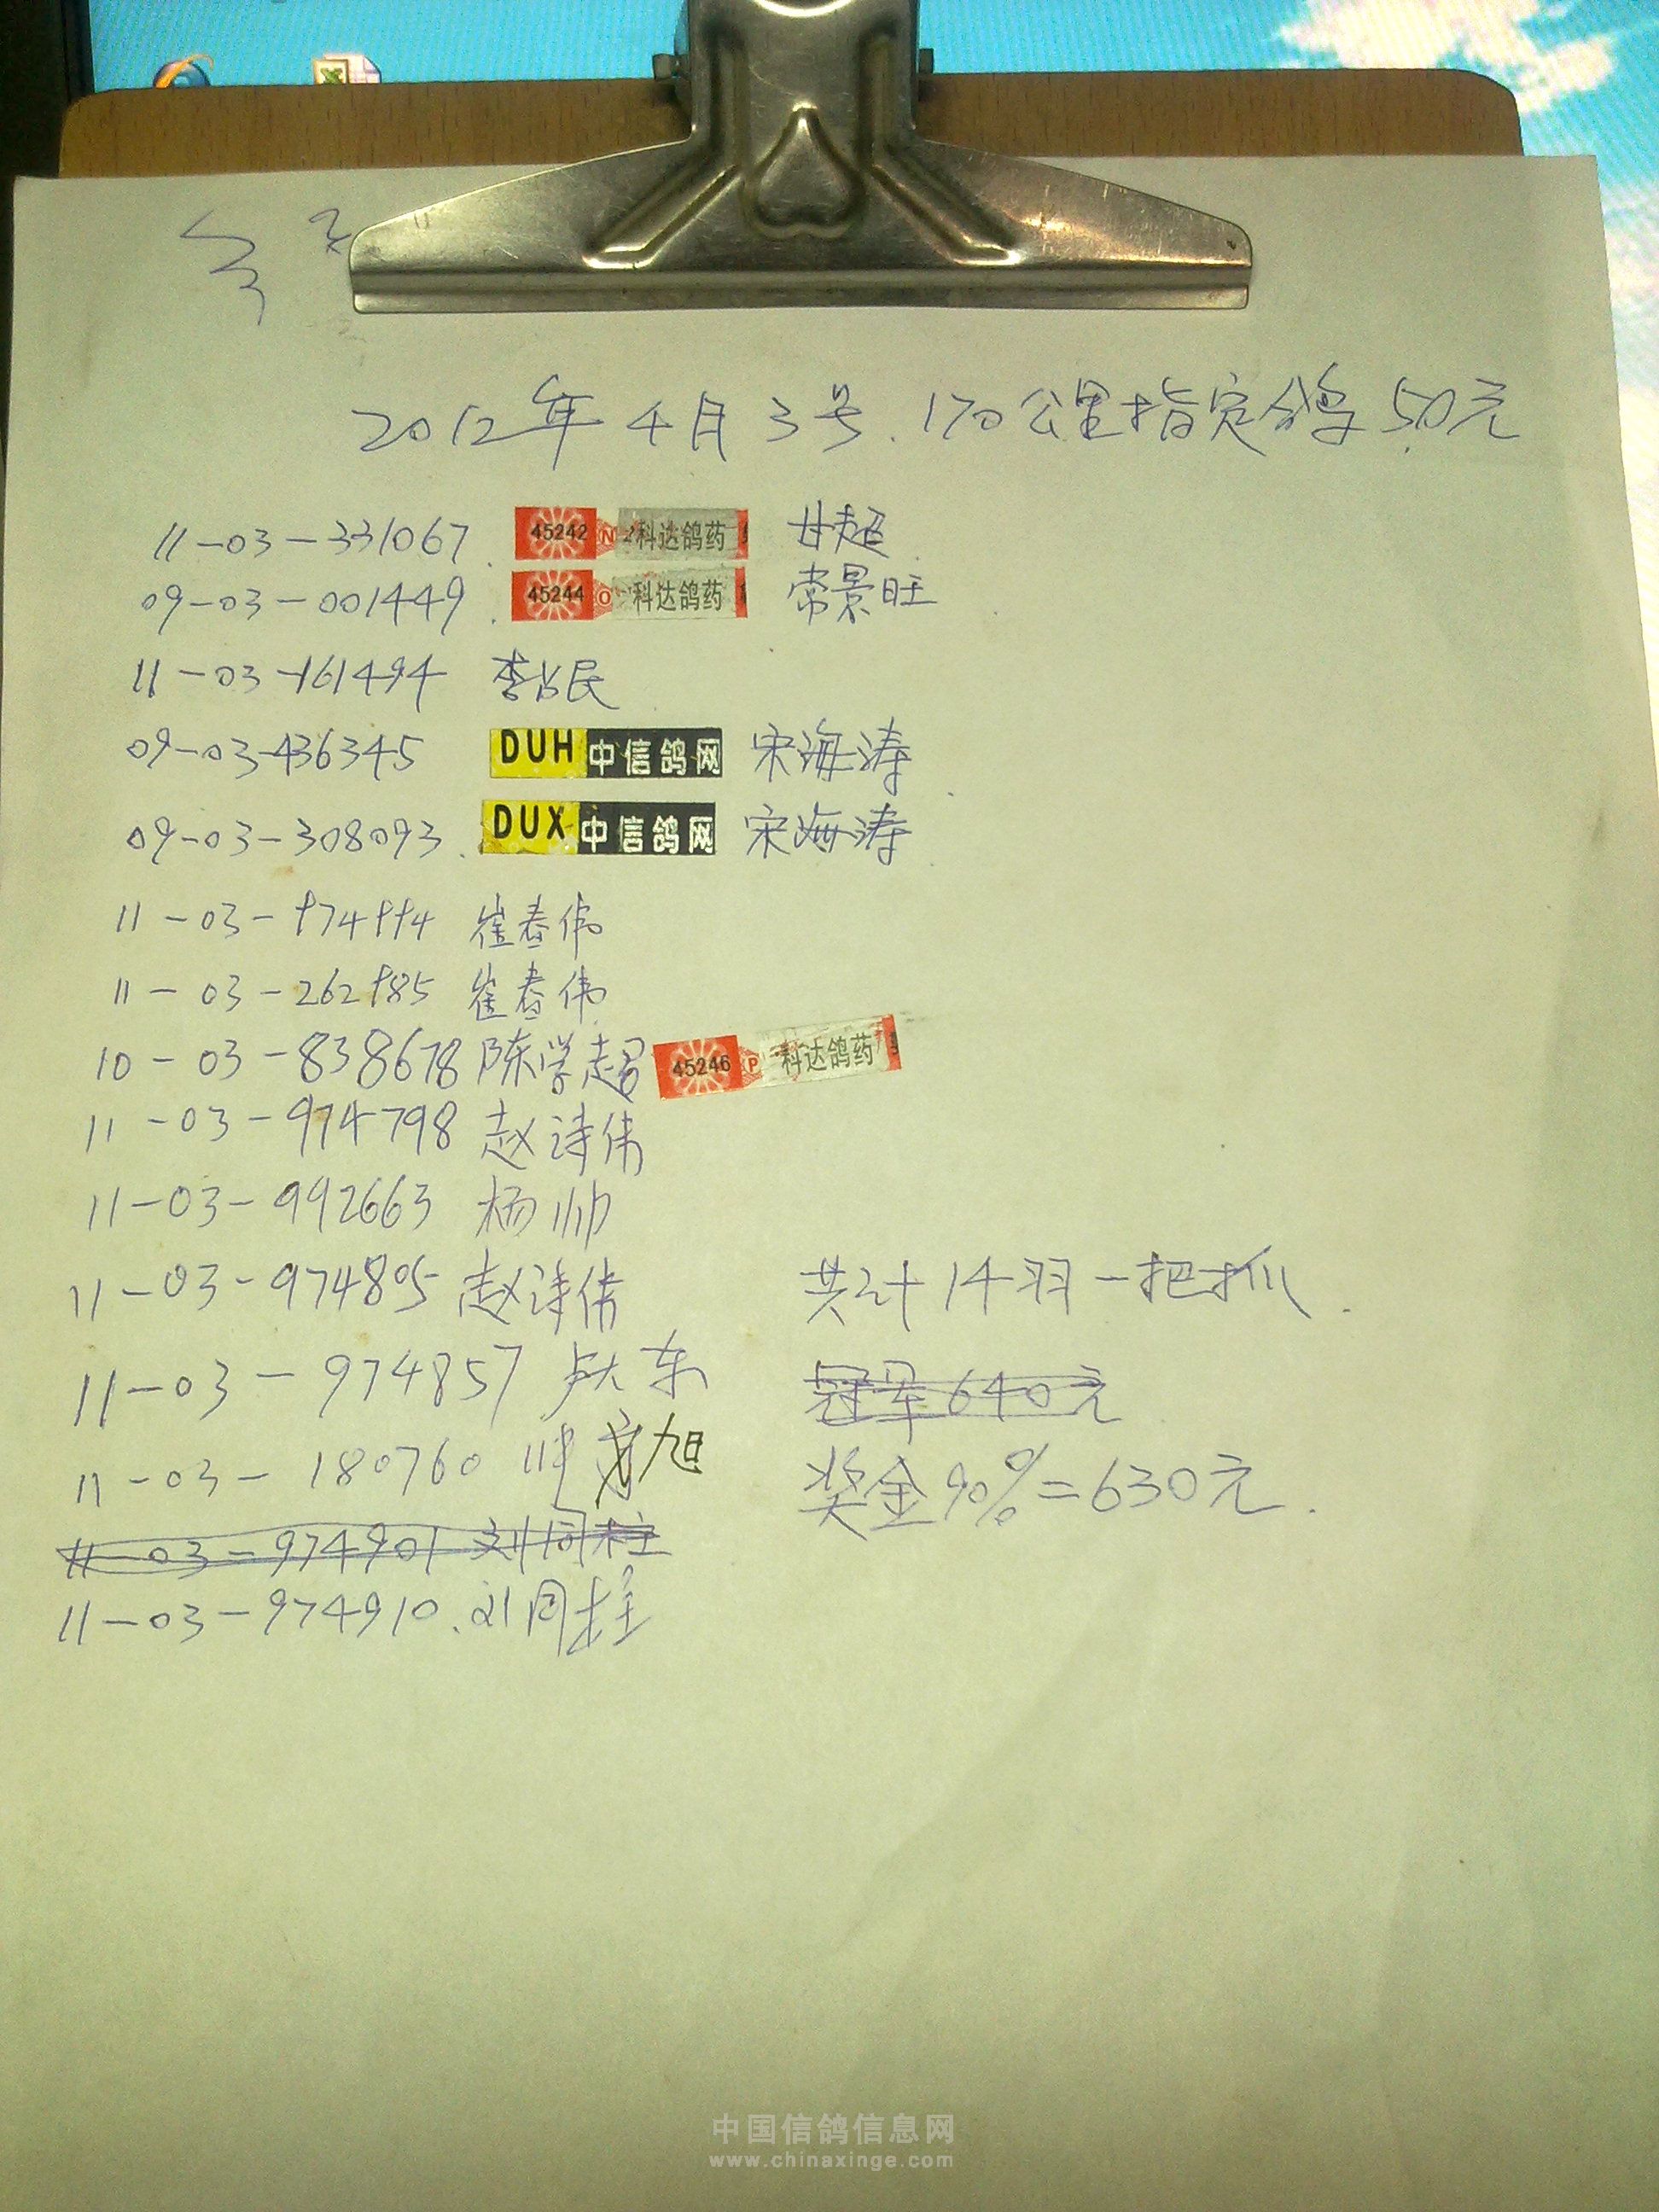 2012年4月3号.170公里指定鸽50元
11-03-331067 45242 N 科达鸽药 甘超
09-03-001449 45244 O 科达鸽药 常景旺
11-03-161494 李占民
09-03-436345 DUH 中信鸽网 宋海涛
09-03-308093 DUX 中信鸽网 宋海涛
11-03-974994 崔春伟
11-03-262985 崔春伟
10-03-838678 陈学超 45246 P 科达鸽药
11-03-974798 赵诗伟
11-03-992663 杨帅
11-03-974805 赵诗伟
11-03-974857 东
11-03-180760 旭
11-03-974901 刘同柱
11-03-974910.刘同柱
共计14羽一把抓.
冠军640元
奖金90%=630元.
中国信鸽信息网
www.chinaxinge.com